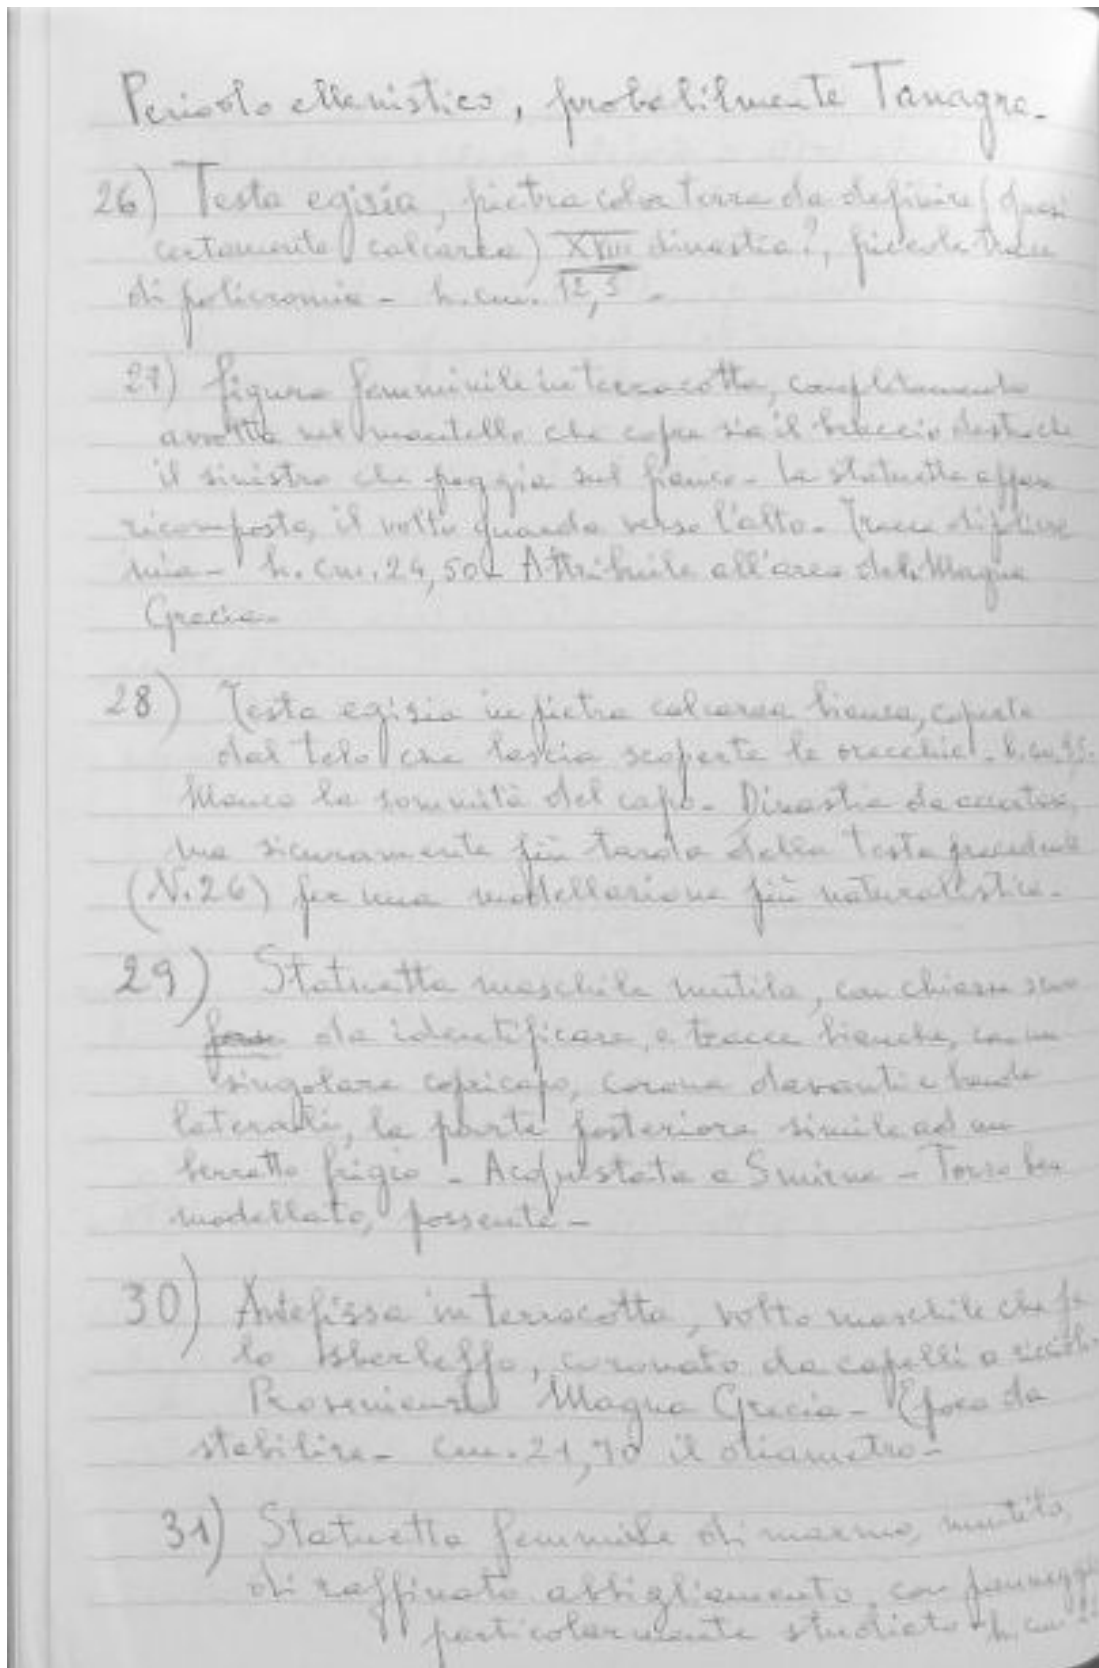 Periodo ellenistico, probabilmente Tanagra-
26) Testa egizia, pietra color terra da definire (quasi
certamente calcarea) XVIII dinastia?, piccole tracce
di policromia - h. cm. 12,5 -
27) figura femminile in terracotta, completamente
avvolta nel mantello che copre sia il braccio destro che
il sinistro che poggia sul fianco - La statuetta appare
ricomposta, il volto guarda verso l'alto - Tracce di policro
mia - h. cm. 24,50 - Attribuile all'area della Magna
Grecia -
28) Testa egizia in pietra calcarea bianca, coperta
dal telo che lascia scoperte le orecchie - h. cm.
Manca la sommità del capo - Dinastia da accertare,
ma sicuramente più tarda della testa precedente
(N. 26) per una modellazione più naturalistica -
29) Statuetta maschile mutila, con chiasma
forse da identificare, a tracce bianche, con un
singolare copricapo, corona davanti e bande
laterali, la parte posteriore simile ad un
berretto frigio - Acquistata a Smirne - Torso ben
modellato, possente -
30) Antefissa in terracotta, volto maschile che fa
lo sberleffo, coronato da capelli a riccioli -
Provenienza Magna Grecia - Epoca da
stabilire - cm. 21,70 il diametro -
31) Statuetta femminile di marmo, mutila,
di raffinato abbigliamento, con panneggio
particolarmente studiato - h. cm.